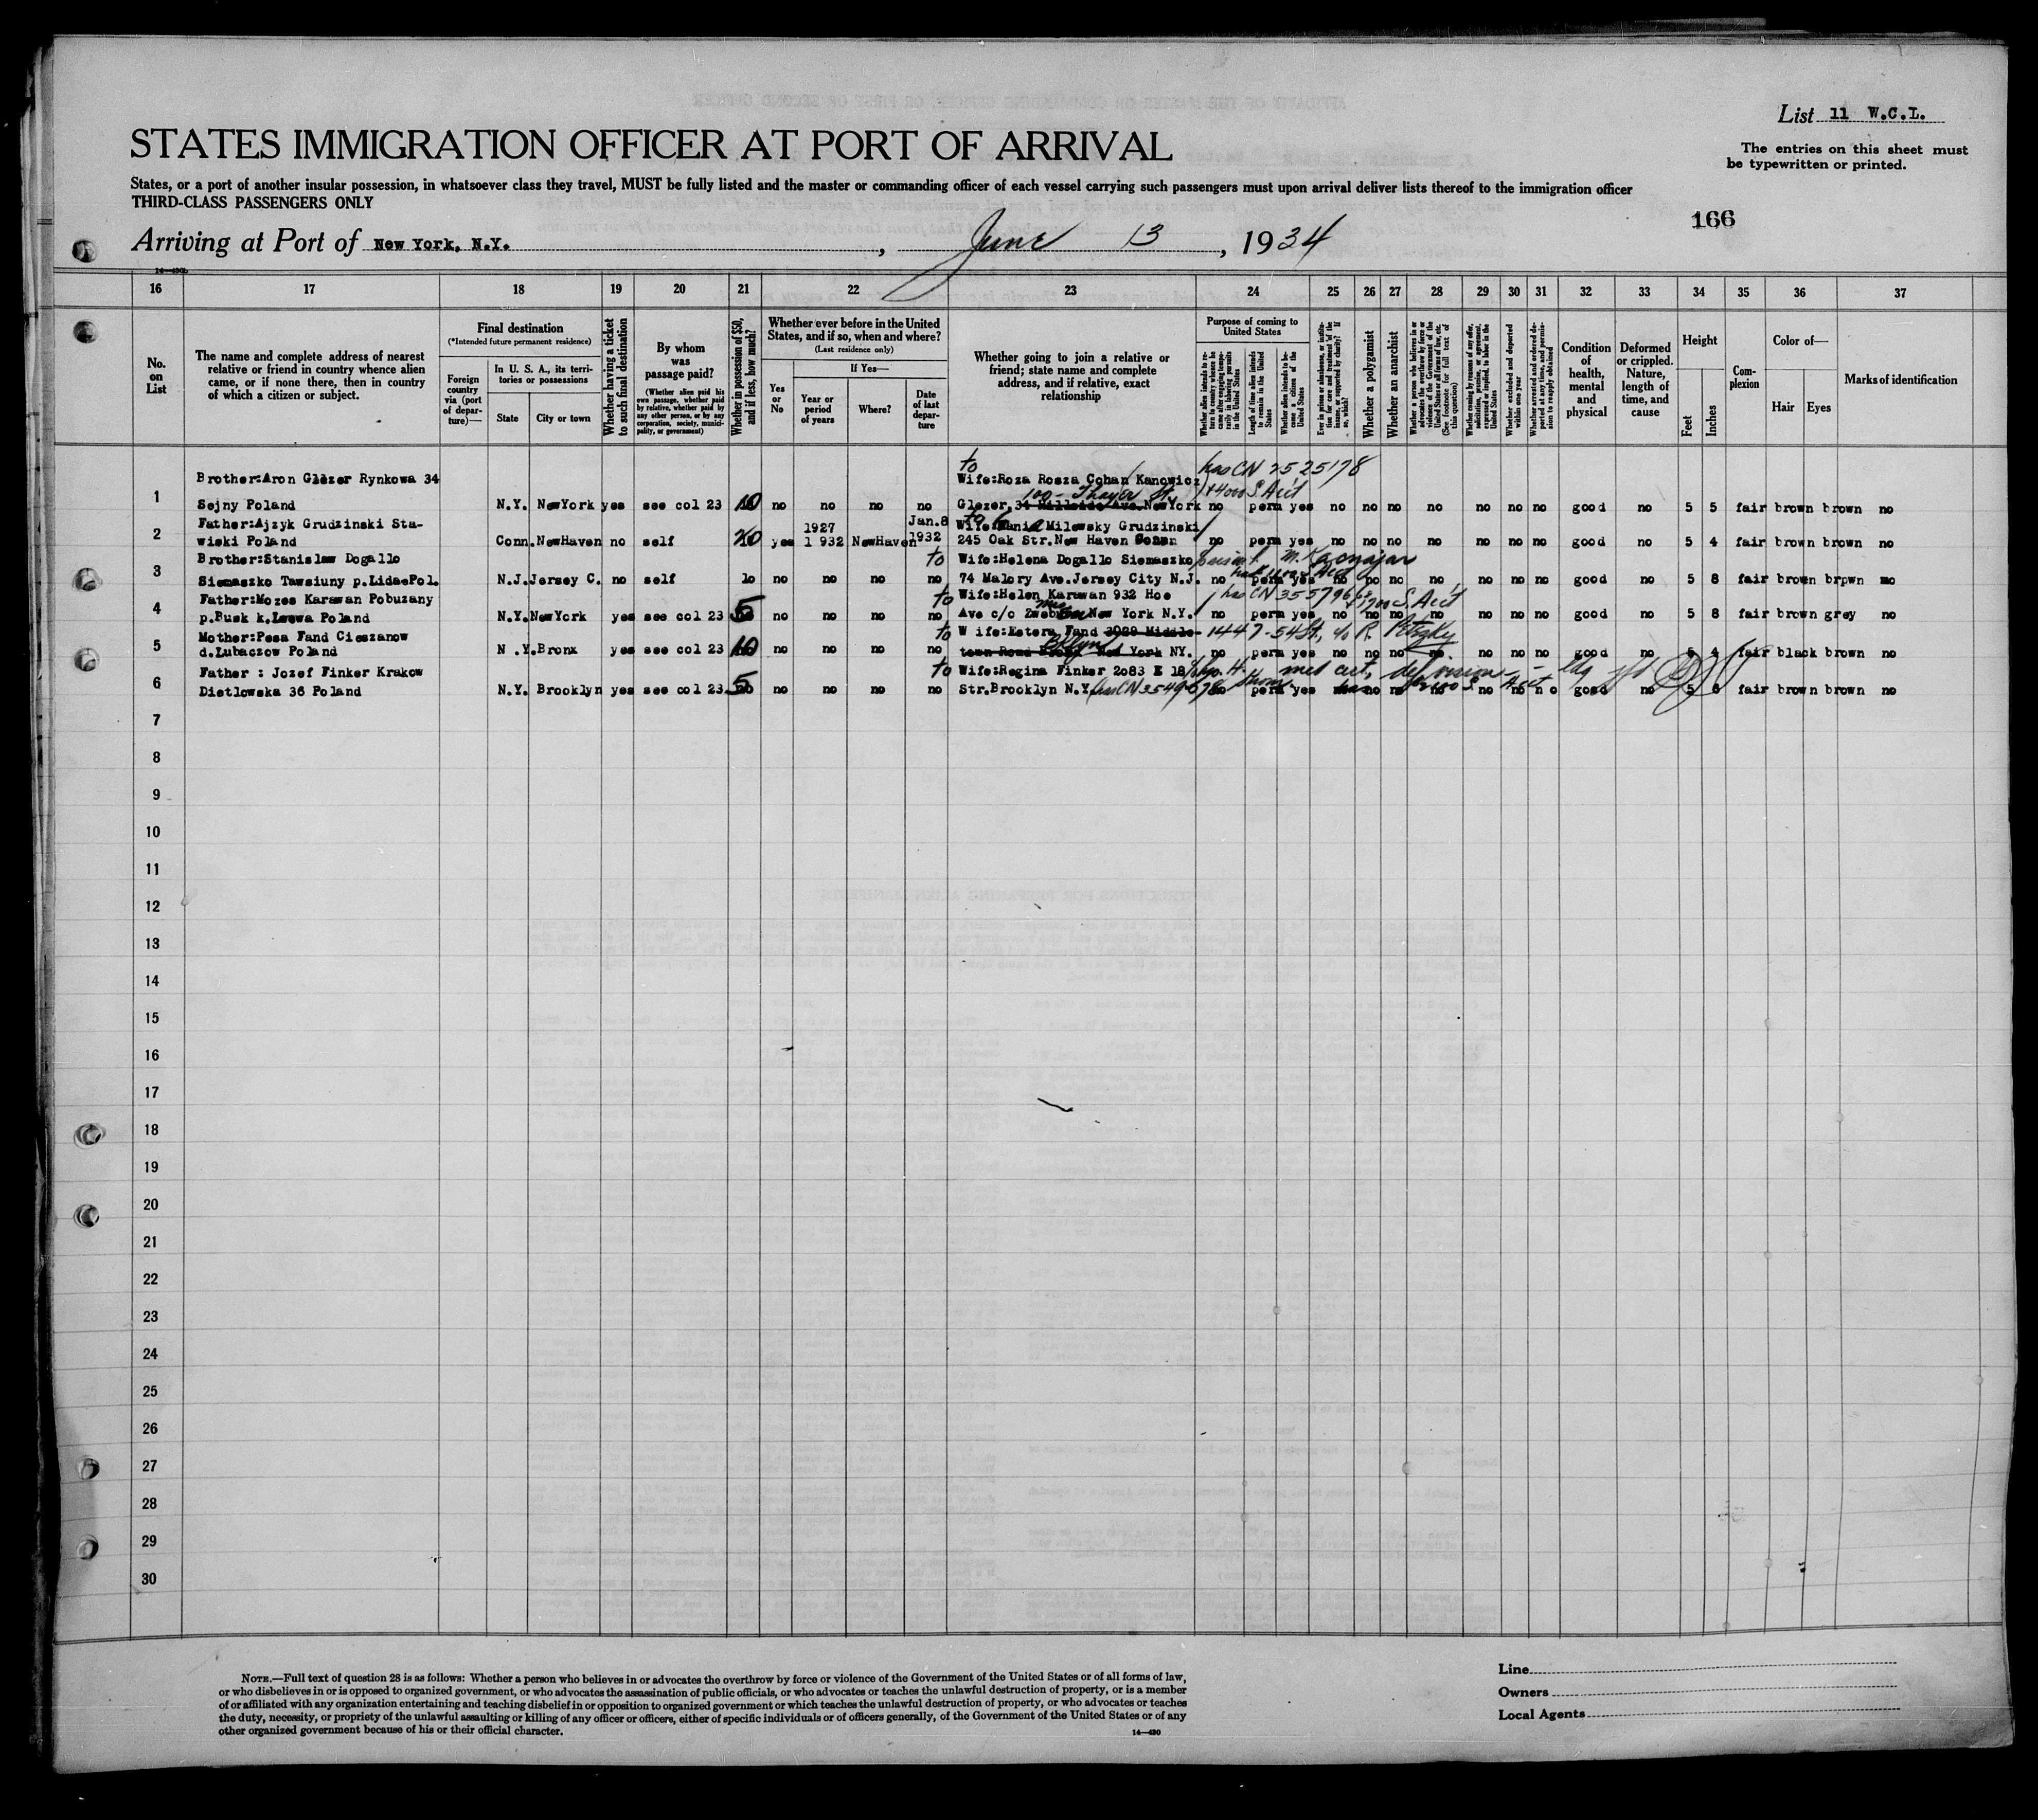 List 11 W.C.L.
STATES IMMIGRATION OFFICER AT PORT OF ARRIVAL
The entries on this sheet must
be typewritten or printed.
States, or a port of another insular possession, in whatsoever class they travel, MUST be fully listed and the master or commanding officer of each vessel carrying such passengers must upon arrival deliver lists thereof to the immigration officer
THIRD-CLASS PASSENGERS ONLY
166
Arriving at Port of New York, N.Y., June 13, 1934
16 17 18 19 20 21 22 23 24 25 26 27 28 29 30 31 32 33 34 35 36 37
No. on List
The name and complete address of nearest relative or friend in country whence alien came, or if none there, then in country of which a citizen or subject.
Final destination
(*Intended future permanent residence)
Foreign country via (port of departure)—
In U. S. A., its territories or possessions
State
City or town
Whether having a ticket to such final destination
By whom was passage paid?
(Whether alien paid his own passage, whether paid by relative, whether paid by any other person, or by any corporation, society, municipality, or government)
Whether in possession of $50, and if less, how much?
Whether ever before in the United States, and if so, when and where?
(Last residence only)
Yes or No
If Yes—
Year or period of years
Where?
Date of last departure
Whether going to join a relative or friend; state name and complete address, and if relative, exact relationship
Purpose of coming to United States
Whether alien intends to return to country whence he came after engaging temporarily in laboring pursuits in the United States
Length of time alien intends to remain in the United States
Whether alien intends to become a citizen of the United States
Ever in prison or almshouse, or institution for care and treatment of the insane, or supported by charity? If so, which?
Whether a polygamist
Whether an anarchist
Whether a person who believes in or advocates the overthrow by force or violence of the Government of the United States or all forms of law, etc. (See footnote for full text of this question)
Whether coming by reason of any offer, solicitation, promise, or agreement, expressed or implied, to labor in the United States
Whether excluded and deported within one year
Whether arrested and ordered deported at any time, and permission to reapply obtained
Condition of health, mental and physical
Deformed or crippled. Nature, length of time, and cause
Height
Feet
Inches
Complexion
Color of—
Hair
Eyes
Marks of identification
to has CN 2525178
Brother:Aron Glezer Rynkowa 34 Wife:Roza Rosza Cohan Kanowicz
100 - Thayer St. $4000 S. Acct
1 Sejny Poland N.Y. NewYork yes see col 23 10 no no no no Glezer, 34 Hillside Ave.NewYork no perm yes no no no no no no no good no 5 5 fair brown brown no
Father:Ajzyk Grudzinski Sta- 1927 Jan.8 to Wife: Milewsky Grudzinski
2 wiski Poland Conn.NewHaven no self 20 yes 1 932 NewHaven 1932 245 Oak Str.New Haven Conn no perm yes no no no no no no no good no 5 4 fair brown brown no
Brother:Stanislaw Dogallo to Wife:Helena Dogallo Siemaszko
3 Siemaszko Tawsiuny p.Lida-Pol. N.J.Jersey C. no self lo no no no no 74 Malory Ave.Jersey City N.J. no perm yes no no no no no no no good no 5 8 fair brown brpwn mo
Father:Mozes Karawan Pobuzany to Wife:Helen Karawan 932 Hoe has CN 355796 $1700 S. Acct
4 p.Busk k.Lwowa Poland N.Y.NewYork yes see col 23 5 no no no no Ave c/o New York N.Y. no perm yes no no no no no no no good no 5 8 fair brown grey no
Mother:Pesa Fand Cieszanow to W ife:Estera Fand 3029 Middle- 1447-54 St., c/o R.
5 d.Lubaczow Poland N .Y.Bronx yes see col 23 10 no no no no town Road Bronx New York NY. Bklyn no perm yes no no no no no no no good no 5 4 fair black brown no
Father : Jozef Finker Krakow to Wife:Regina Finker 2o83 E 18 med cert, def vision
6 Dietlowska 36 Poland N.Y. Brooklyn yes see col 23 5 no no no no Str.Brooklyn N.Y. has CN 3549678 no perm yes no no no no no no n o good no 5 6 fair brown brown no
7
8
9
10
11
12
13
14
15
16
17
18
19
20
21
22
23
24
25
26
27
28
29
30
NOTE.—Full text of question 28 is as follows: Whether a person who believes in or advocates the overthrow by force or violence of the Government of the United States or of all forms of law,
or who disbelieves in or is opposed to organized government, or who advocates the assassination of public officials, or who advocates or teaches the unlawful destruction of property, or is a member
of or affiliated with any organization entertaining and teaching disbelief in or opposition to organized government or which teaches the unlawful destruction of property, or who advocates or teaches
the duty, necessity, or propriety of the unlawful assaulting or killing of any officer or officers, either of specific individuals or of officers generally, of the Government of the United States or of any
other organized government because of his or their official character.
14—430
Line
Owners
Local Agents